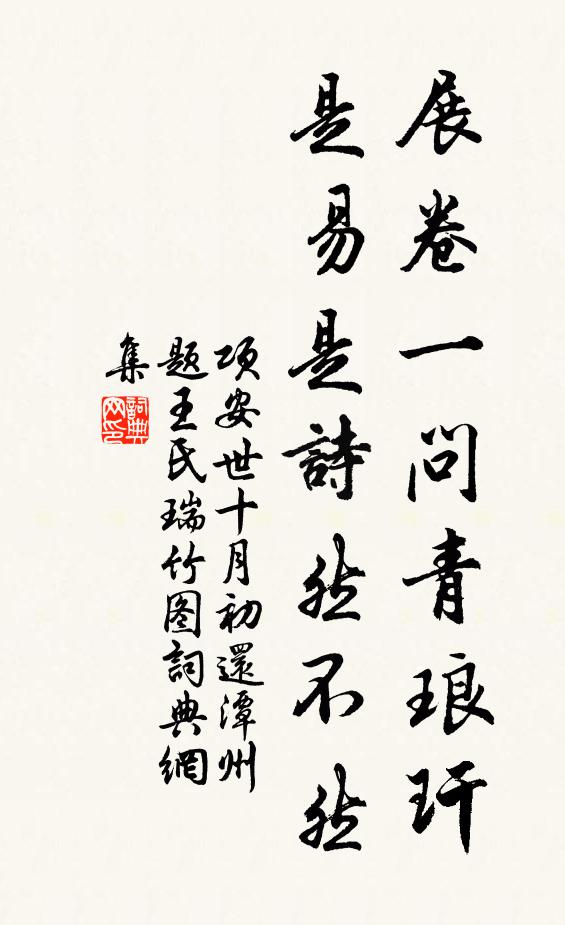 展卷一问青琅玕
是易是詩然不然
项安世十月初還潭州
题王民瑞竹图詞典網
集
詞典
网印